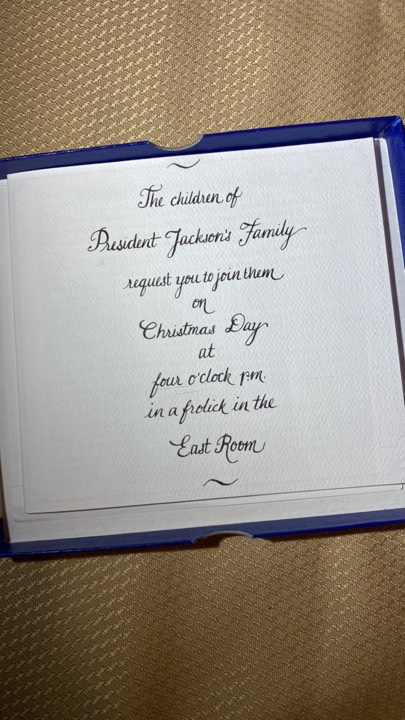 The children of
President Jackson's Family
request you to join them
on
Christmas Day
at
four o'clock p.m.
in a frolick in the
East Room